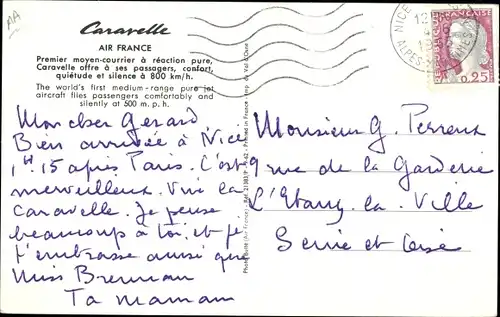 AA
Caravelle
AIR FRANCE
Premier moyen-courrier à réaction pure,
Caravelle offre à ses passagers, confort,
quiétude et silence à 800 km/h.
The world's first medium-range pure jet
aircraft flies passengers comfortably and
silently at 500 m. p. h.
Mon cher Gerard
Bien arrivée à Nice
1H.15 après Paris. C'est
merveilleux. Vive la
Caravelle. Je pense
beaucoup à toi. et je
t'embrasse ainsi que
Miss Brennan
Ta maman
Printed in France
NICE
ALPES-MARITIMES
0,25
Monsieur G. Perreux
9 rue de la Garderie
L'Etang. la. Ville
Seine et Oise